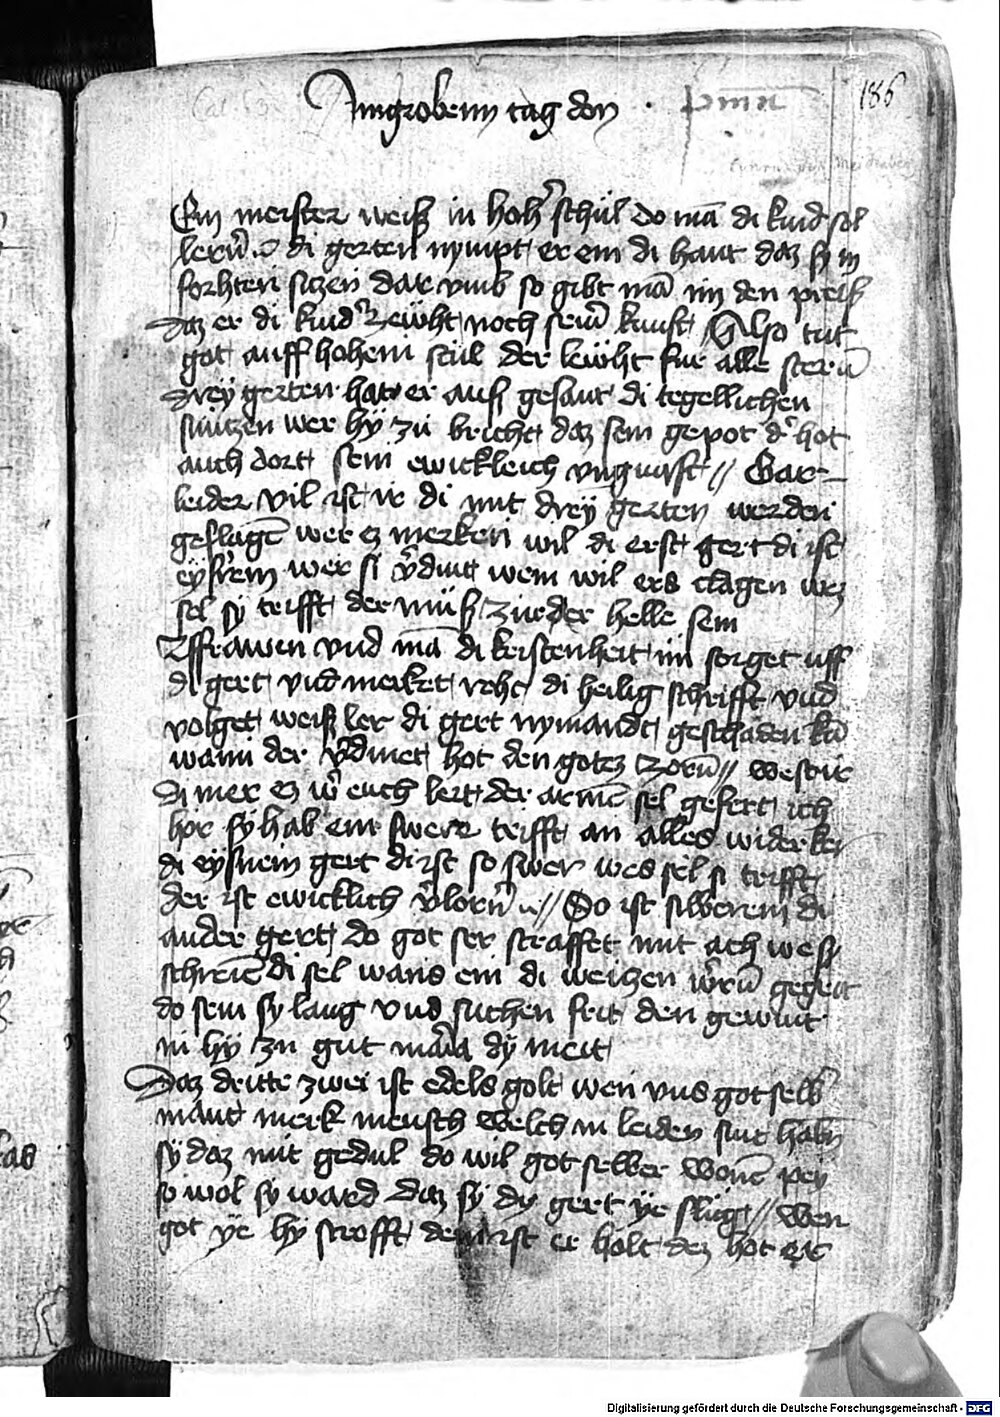 Im groben tag don
186
Ein meister weiß in hoher schul do mā di kind sol
lerñ di gerten nympt er em di hant daz sy in
forhten siczen dar vmb so gibt mā im den preiß
daz er di kind zeuht noch seīn kunst // Also tut
got auff hohem stul der leuht fur alle sterñ
drey gerten hat er auß gesant di tegellichen
smitzen wer hÿ zu bricht daz sein gepot der hot
auch dort sein ewickleich // Gar
leider vil ist ir di mit dreÿ gerten werden
geslagē wer ez merken wil di erst gert di ist
eysrem wer si v̄dint wem wil ers clagen wez
sel sÿ trifft der muß zu der helle sein
frawen vnd mā di kristenheit nu sorget uff
di gert vnd merket reht di heilig schrifft vnd
volget weiß ler di gert nymandt geschaden kā
wann der v̄dinet hot den gotz zorñ //
di mer ez wer euch lert der armē sel gefert ich
hor sÿ hab ein swere trifft an alles widerker
di eysnein gert di ist so swer wes sel si trifft
der ist ewicklich v̄lorñ // So ist silberein di
ander gert do got ser straffet mit ach we
schreiē di sel wans ein di weiczen
do sein sy lang vnd suchen seit den gewint
in hÿ zu gut maria dÿ meit
Daz dritte zwei ist edels golt wen vns got selb
mant merk mensch welch in leiden sint habñ
sÿ daz mit gedul do wil got selber wonē peÿ
so wol sy ward daz sÿ dy gert ÿe slug // Wen
got ÿe hy strofft dem ist er holt dez hot er
Digitalisierung gefördert durch die Deutsche Forschungsgemeinschaft - DFG